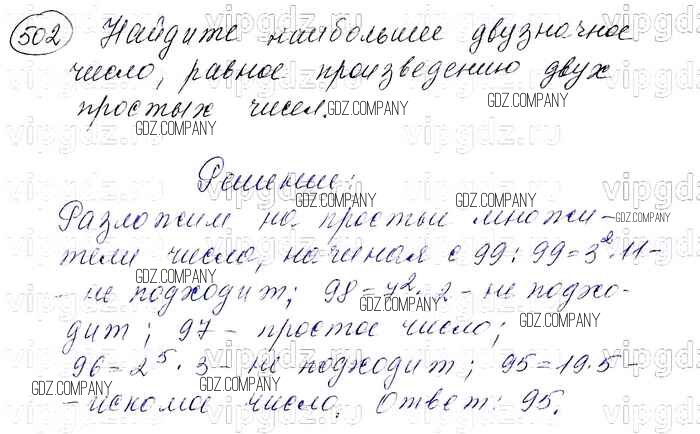 502 Найдите наибольшее двузначное
число, равное произведению двух
простых чисел.
Решение:
Разложим на простые множи-
тели число, начиная с 99: 99=3²·11-
- не подходит; 98=7²·2 - не подхо-
дит; 97 - простое число;
96=2⁵·3 - не подходит; 95=19·5-
- искомое число. Ответ: 95.
GDZ.COMPANY
vipgdz.ru